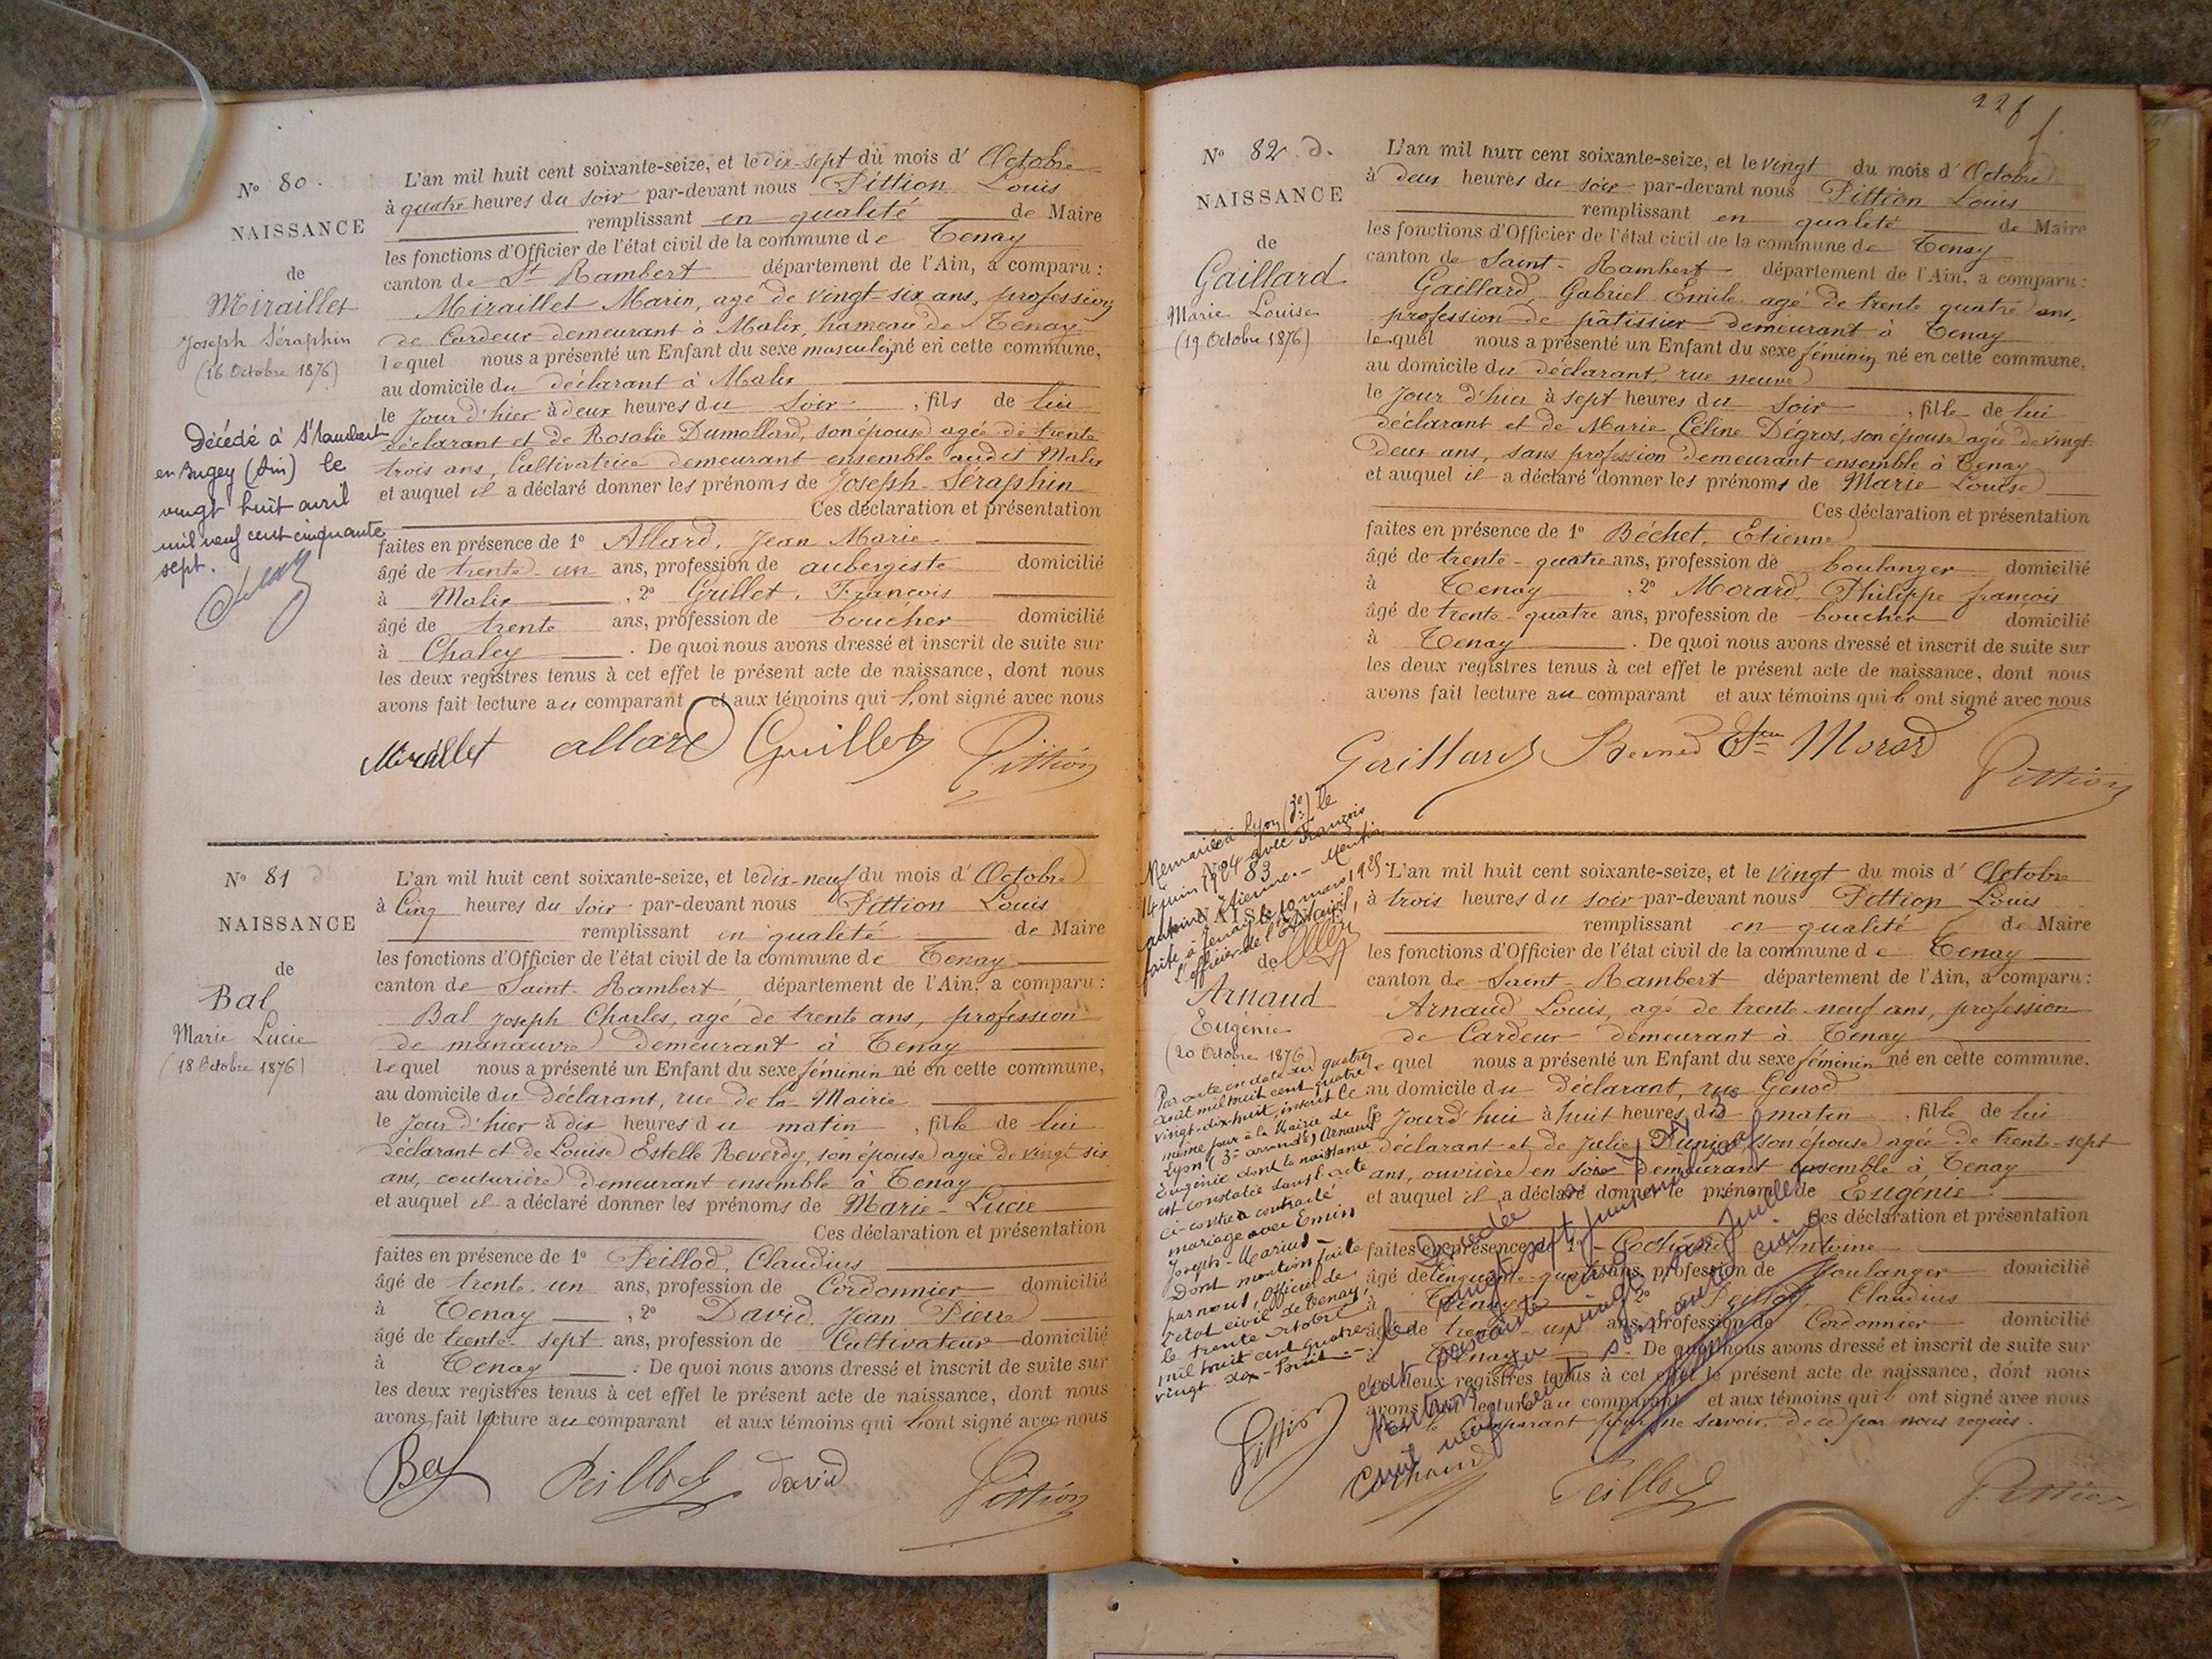 Nº 80.
NAISSANCE
de
Miraillet
Joseph Séraphin
(16 Octobre 1876)
Décédé à St Rambert
en Bugey (Ain) le
vingt huit avril
mil neuf cent cinquante
sept.
L'an mil huit cent soixante-seize, et le dix-sept du mois d'Octobre
à quatre heures du soir par-devant nous Pittion Louis
remplissant en qualité de Maire
les fonctions d'Officier de l'état civil de la commune de Tenay
canton de St Rambert département de l'Ain, a comparu :
Miraillet Marin, agé de vingt-six ans, profession
de Cardeur demeurant à Malix, hameau de Tenay
lequel nous a présenté un Enfant du sexe masculin, né en cette commune,
au domicile du déclarant à Malix
le jour d'hier à deux heures du soir, fils de lui
déclarant et de Rosalie Dumollard, son épouse agée de trente
trois ans, Cultivatrice demeurant ensemble audit Malix
et auquel il a déclaré donner les prénoms de Joseph-Séraphin
Ces déclaration et présentation
faites en présence de 1º Allard, Jean Marie
âgé de trente-un ans, profession de aubergiste domicilié
à Malix, 2º Grillet, François
âgé de trente ans, profession de boucher domicilié
à Chaley. De quoi nous avons dressé et inscrit de suite sur
les deux registres tenus à cet effet le présent acte de naissance, dont nous
avons fait lecture au comparant et aux témoins qui l'ont signé avec nous
Miraillet Allard Grillet Pittion
Nº 81
NAISSANCE
de
Bal
Marie Lucie
(18 Octobre 1876)
L'an mil huit cent soixante-seize, et le dix-neuf du mois d'Octobre
à Cinq heures du soir par-devant nous Pittion Louis
remplissant en qualité de Maire
les fonctions d'Officier de l'état civil de la commune de Tenay
canton de Saint-Rambert département de l'Ain, a comparu :
Bal Joseph Charles, agé de trente ans, profession
de manœuvre demeurant à Tenay
lequel nous a présenté un Enfant du sexe féminin né en cette commune,
au domicile du déclarant, rue de la Mairie
le jour d'hier à dix heures du matin, fille de lui
déclarant et de Louise Estelle Reverdy, son épouse agée de vingt six
ans, couturière demeurant ensemble à Tenay
et auquel il a déclaré donner les prénoms de Marie-Lucie
Ces déclaration et présentation
faites en présence de 1º Peillod, Claudius
âgé de trente-un ans, profession de Cordonnier domicilié
à Tenay, 2º David, Jean Pierre
âgé de trente-sept ans, profession de Cultivateur domicilié
à Tenay. De quoi nous avons dressé et inscrit de suite sur
les deux registres tenus à cet effet le présent acte de naissance, dont nous
avons fait lecture au comparant et aux témoins qui l'ont signé avec nous
Bal Peillod David Pittion
Nº 82 d.
NAISSANCE
de
Gaillard
Marie Louise
(19 Octobre 1876)
L'an mil huit cent soixante-seize, et le vingt du mois d'Octobre
à deux heures du soir par-devant nous Pittion Louis
remplissant en qualité de Maire
les fonctions d'Officier de l'état civil de la commune de Tenay
canton de Saint-Rambert département de l'Ain, a comparu :
Gaillard, Gabriel Emile agé de trente quatre ans,
profession de pâtissier demeurant à Tenay
lequel nous a présenté un Enfant du sexe féminin né en cette commune,
au domicile du déclarant, rue neuve
le jour d'hier à sept heures du soir, fille de lui
déclarant et de Marie Céline Dégros, son épouse agée de vingt
deux ans, sans profession demeurant ensemble à Tenay
et auquel il a déclaré donner les prénoms de Marie Louise
Ces déclaration et présentation
faites en présence de 1º Béchet, Etienne
âgé de trente-quatre ans, profession de boulanger domicilié
à Tenay, 2º Morard, Philippe françois
âgé de trente-quatre ans, profession de boucher domicilié
à Tenay. De quoi nous avons dressé et inscrit de suite sur
les deux registres tenus à cet effet le présent acte de naissance, dont nous
avons fait lecture au comparant et aux témoins qui l'ont signé avec nous
Gaillard Morard Pittion
Remariée à Lyon (3e) le
14 juin 1924 avec François
antoine Etienne. - Mention
faite à Tenay le 10 mars 1925
l'officier de l'état civil,
83
de
Arnaud
Eugénie
(20 Octobre 1876)
Par acte en date du quatre
août mil huit cent quatre
vingt-dix-huit, inscrit le
même jour à la Mairie de
Lyon (3me arrondt) Arnaud
Eugénie dont la naissance
est constatée dans l'acte
ci-contre a contracté
mariage avec Emin
Joseph-Marius -
Dont mention faite
par nous, Officier de
l'état civil de Tenay,
le trente octobre
mil huit cent quatre
vingt-dix-huit.-
Pittion
L'an mil huit cent soixante-seize, et le vingt du mois d'Octobre
à trois heures du soir par-devant nous Pittion Louis
remplissant en qualité de Maire
les fonctions d'Officier de l'état civil de la commune de Tenay
canton de Saint-Rambert département de l'Ain, a comparu :
Arnaud Louis, agé de trente-neuf ans, profession
de Cardeur demeurant à Tenay
lequel nous a présenté un Enfant du sexe féminin né en cette commune.
au domicile du déclarant, rue Genod
le jourd'hui à huit heures du matin, fille de lui
déclarant et de Julie son épouse agée de trente-sept
ans, ouvrière en soie demeurant ensemble à Tenay
et auquel il a déclaré donner le prénom de Eugénie
Ces déclaration et présentation
faites en présence de 1º Cochard Antoine
âgé de cinquante-quatre ans, profession de boulanger domicilié
à Tenay 2º Peillod, Claudius
âgé de trente-un ans, profession de Cordonnier domicilié
à Tenay. De quoi nous avons dressé et inscrit de suite sur
les deux registres tenus à cet effet le présent acte de naissance, dont nous
avons fait lecture au comparant et aux témoins qui l'ont signé avec nous
le comparant pour ne savoir, de ce par nous requis.
Décédée
le vingt sept juin mil neuf
cent soixante cinq
Mention du vingt Juillet
mil neuf cent soixante cinq
Cochard Peillod Pittion